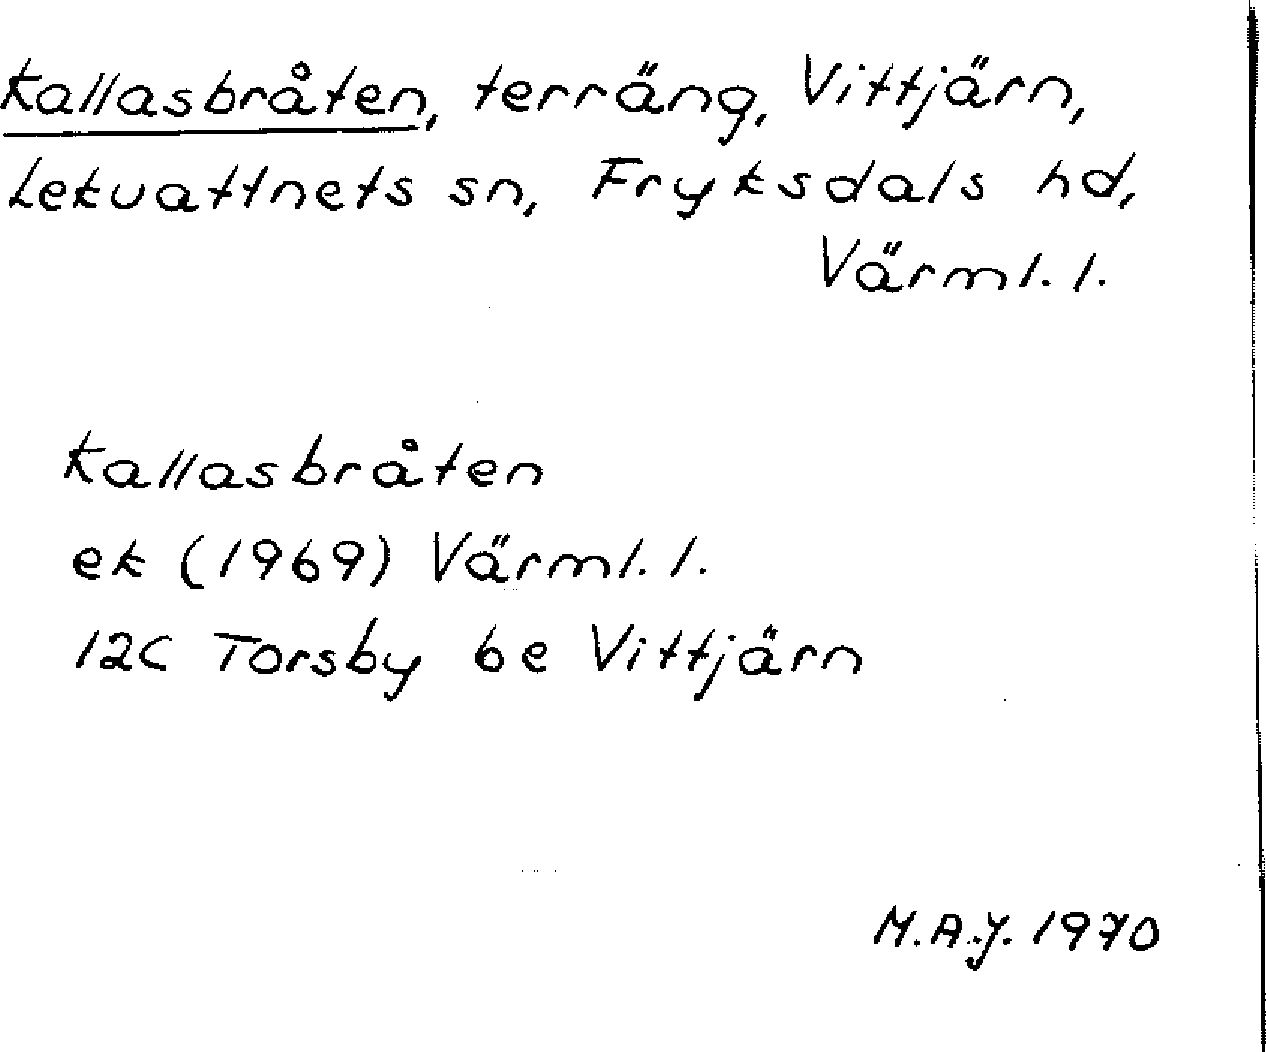 Kallasbråten, terräng, Vittjärn,
Lekvattnets sn, Fryksdals hd,
Värml. l.
Kallasbråten
ek (1969) Värml. l.
12C Torsby 6e Vittjärn
M.A.J. 1970